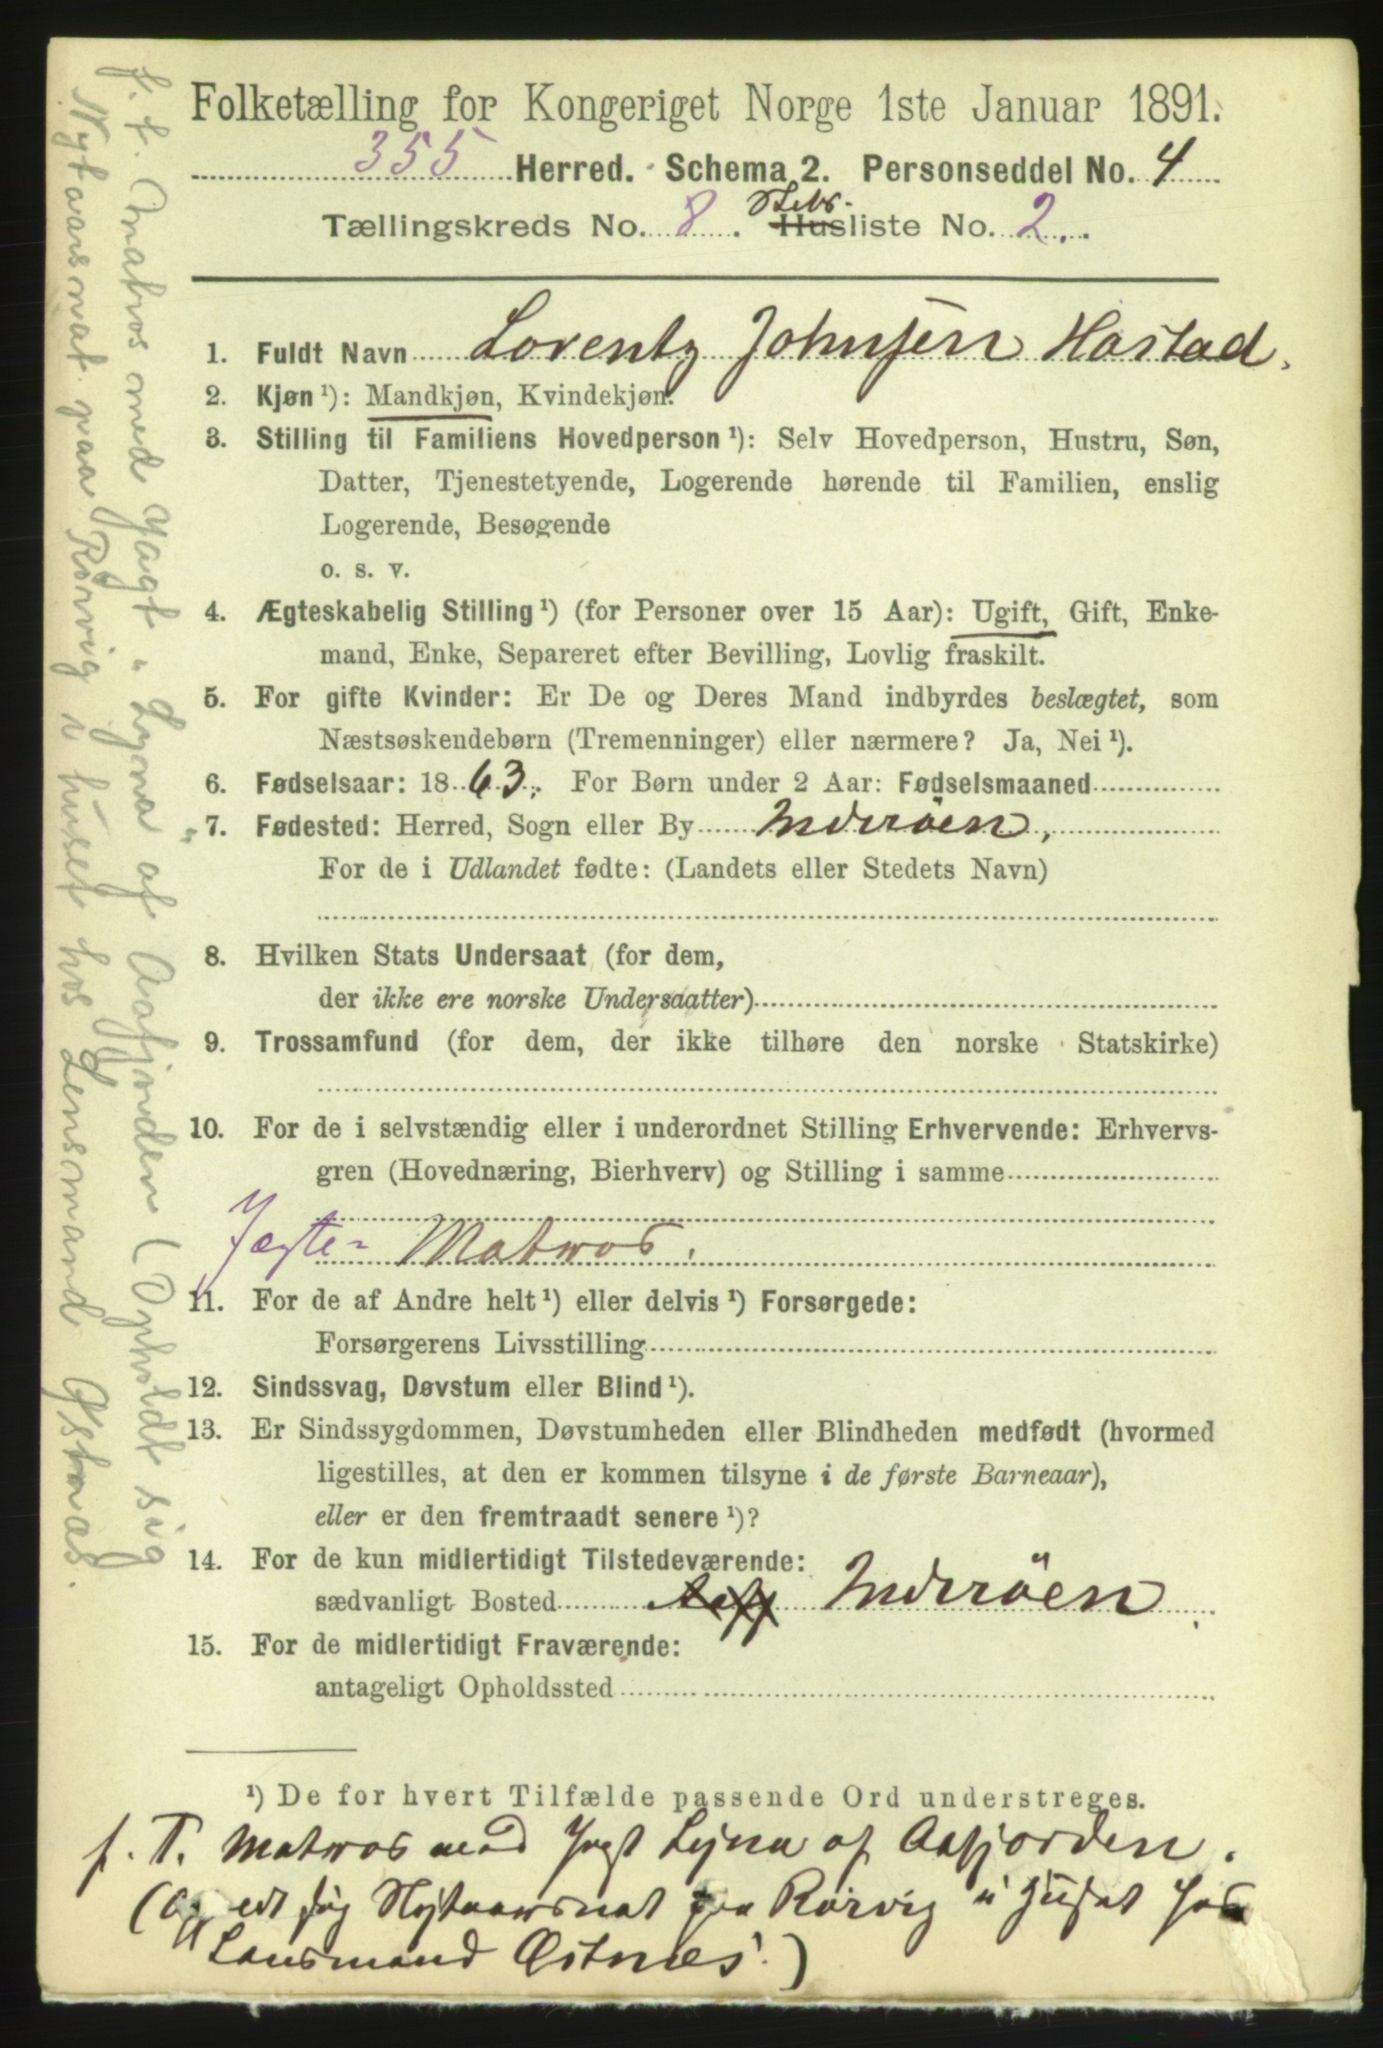 Folketælling for Kongeriget Norge 1ste Januar 1891.
355 Herred. Schema 2. Personseddel No. 4
Skbs.
Tællingskreds No. 8. Husliste No. 2.
1. Fuldt Navn Lorentz Johnsen Hastad.
2. Kjøn ¹): Mandkjøn, Kvindekjøn.
3. Stilling til Familiens Hovedperson ¹): Selv Hovedperson, Hustru, Søn,
Datter, Tjenestetyende, Logerende hørende til Familien, enslig
Logerende, Besøgende
o. s. v.
4. Ægteskabelig Stilling ¹) (for Personer over 15 Aar): Ugift, Gift, Enke-
mand, Enke, Separeret efter Bevilling, Lovlig fraskilt.
5. For gifte Kvinder: Er De og Deres Mand indbyrdes beslægtet, som
Næstsøskendebørn (Tremenninger) eller nærmere? Ja, Nei ¹).
6. Fødselsaar: 1863. For Børn under 2 Aar: Fødselsmaaned
7. Fødested: Herred, Sogn eller By Inderöen,
For de i Udlandet fødte: (Landets eller Stedets Navn)
8. Hvilken Stats Undersaat (for dem,
der ikke ere norske Undersaatter)
9. Trossamfund (for dem, der ikke tilhøre den norske Statskirke)
10. For de i selvstændig eller i underordnet Stilling Erhvervende: Erhvervs-
gren (Hovednæring, Bierhverv) og Stilling i samme
Jægte- Matros.
11. For de af Andre helt ¹) eller delvis ¹) Forsørgede:
Forsørgerens Livsstilling
12. Sindssvag, Døvstum eller Blind ¹).
13. Er Sindssygdommen, Døvstumheden eller Blindheden medfødt (hvormed
ligestilles, at den er kommen tilsyne i de første Barneaar),
eller er den fremtraadt senere ¹)?
14. For de kun midlertidigt Tilstedeværende:
sædvanligt Bosted Inderöen.
15. For de midlertidigt Fraværende:
antageligt Opholdssted
¹) De for hvert Tilfælde passende Ord understreges.
f. T. Matros med Jagt Lyna af Aafjorden.
( sig Nytaarsnat paa Rörvig i Huset hos
Lensmand Östnæs.)
f. t. matros med Jagt "Lyna" af Aafjorden (Opholdt sig
Nytaarsnat paa Rörvig i huset hos Lensmand Østnæs.